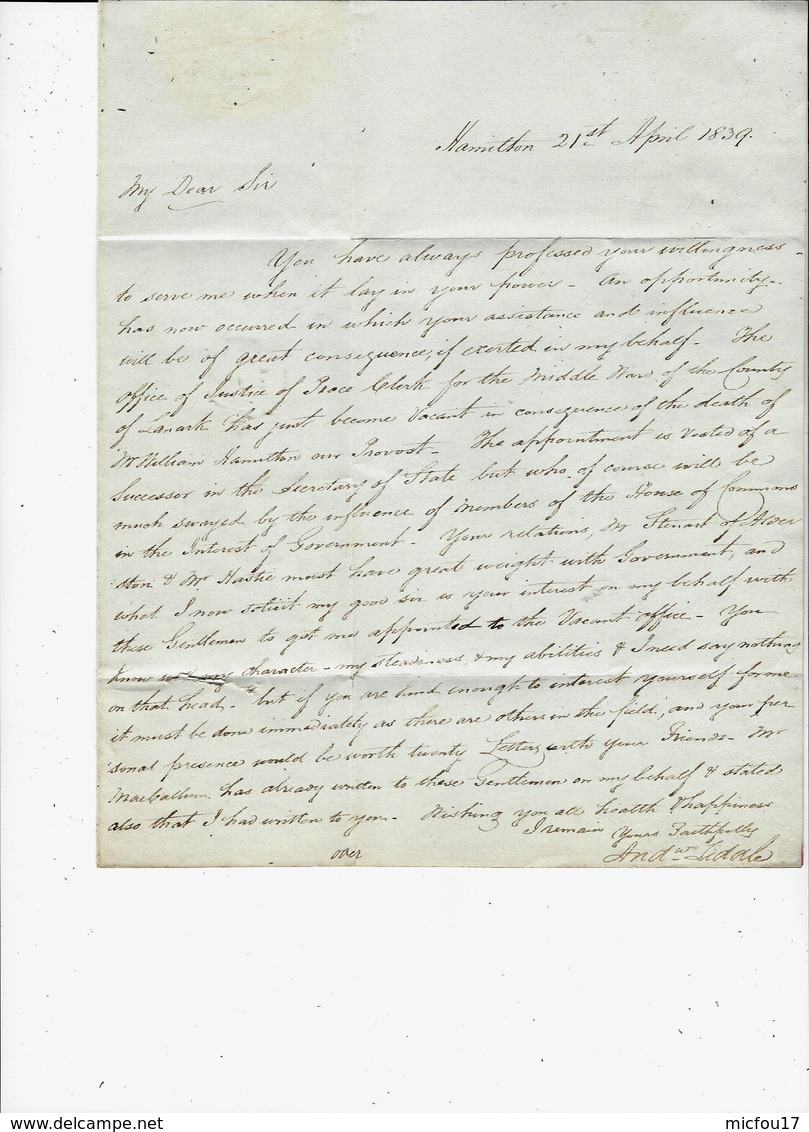 Hamilton 21st April 1839.
My Dear Sir
You have always professed your willingness
to serve me when it lay in your power - An opportunity
has now occurred in which your assistance and influence
will be of great consequence, if exerted in my behalf - The
office of Justice of Peace Clerk for the Middle Ward of the County
of Lanark has just become Vacant in consequence of the death of
Mr William Hamilton our Provost - The appointment is Vested of a
Successor in the Secretary of State but who of course will be
much swayed by the influence of Members of the House of Commons
in the Interest of Government - Your relations, Mr Steuart of Alder
ston & Mr Hastie must have great weight with Government, and
what I now solicit my good sir is your interest on my behalf with
these Gentlemen to get me appointed to the Vacant office - You
know my character - my steadiness, & my abilities & I need say nothing
on that head - but if you are kind enough to interest yourself for me
it must be done immediately as there are others in the field, and your per
sonal presence would be worth twenty Letters with your Friends - Mr
MacCallum has already written to these Gentlemen on my behalf & stated
also that I had written to you - Wishing you all health & happiness
I remain Yours Faithfully
Andw Liddle
over
www.delcampe.net
micfou17